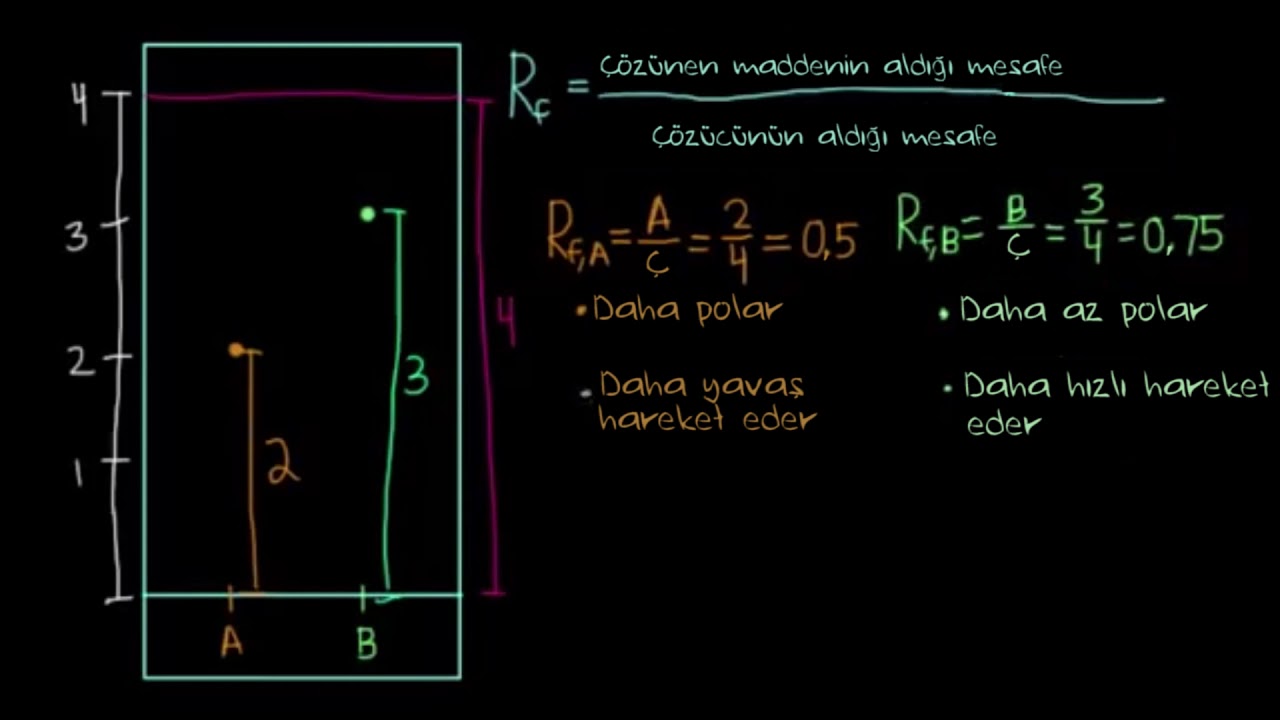 4
3
2
1
A
B
2
3
4
R_f = çözünen maddenin aldığı mesafe
çözücünün aldığı mesafe
R_f,A = A/ç = 2/4 = 0,5
• Daha polar
• Daha yavaş
hareket eder
R_f,B = B/ç = 3/4 = 0,75
• Daha az polar
• Daha hızlı hareket
eder